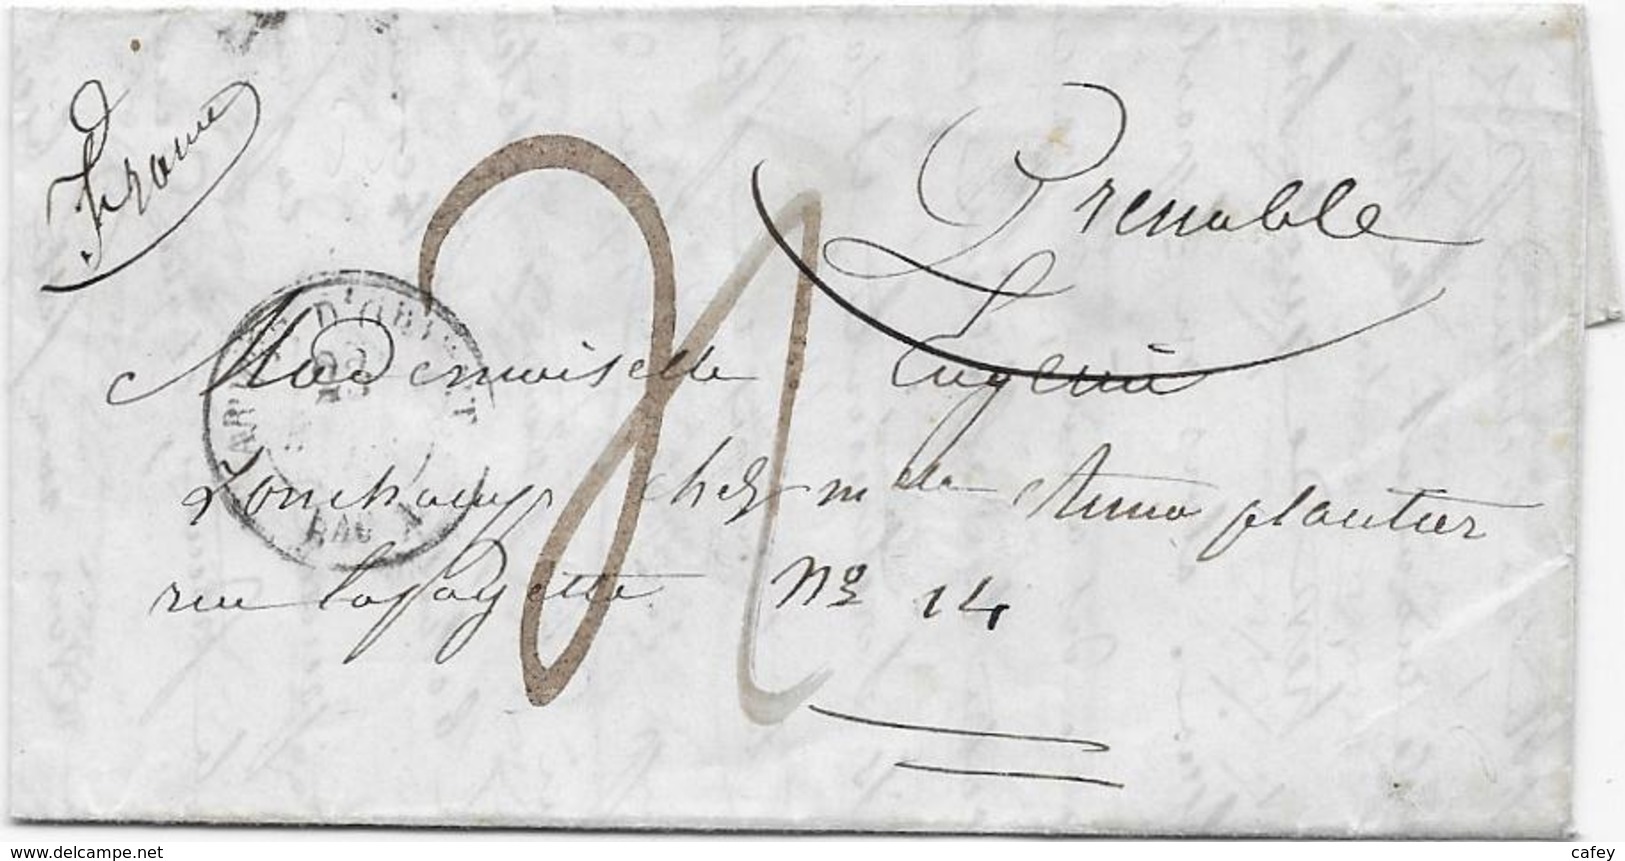 France
Grenoble
Mademoiselle Eugenie
Lonchamp chez melle Anna plantier
rue lafayette No 14
ARMÉE D'ORIENT
BAU A
www.delcampe.net
cafey